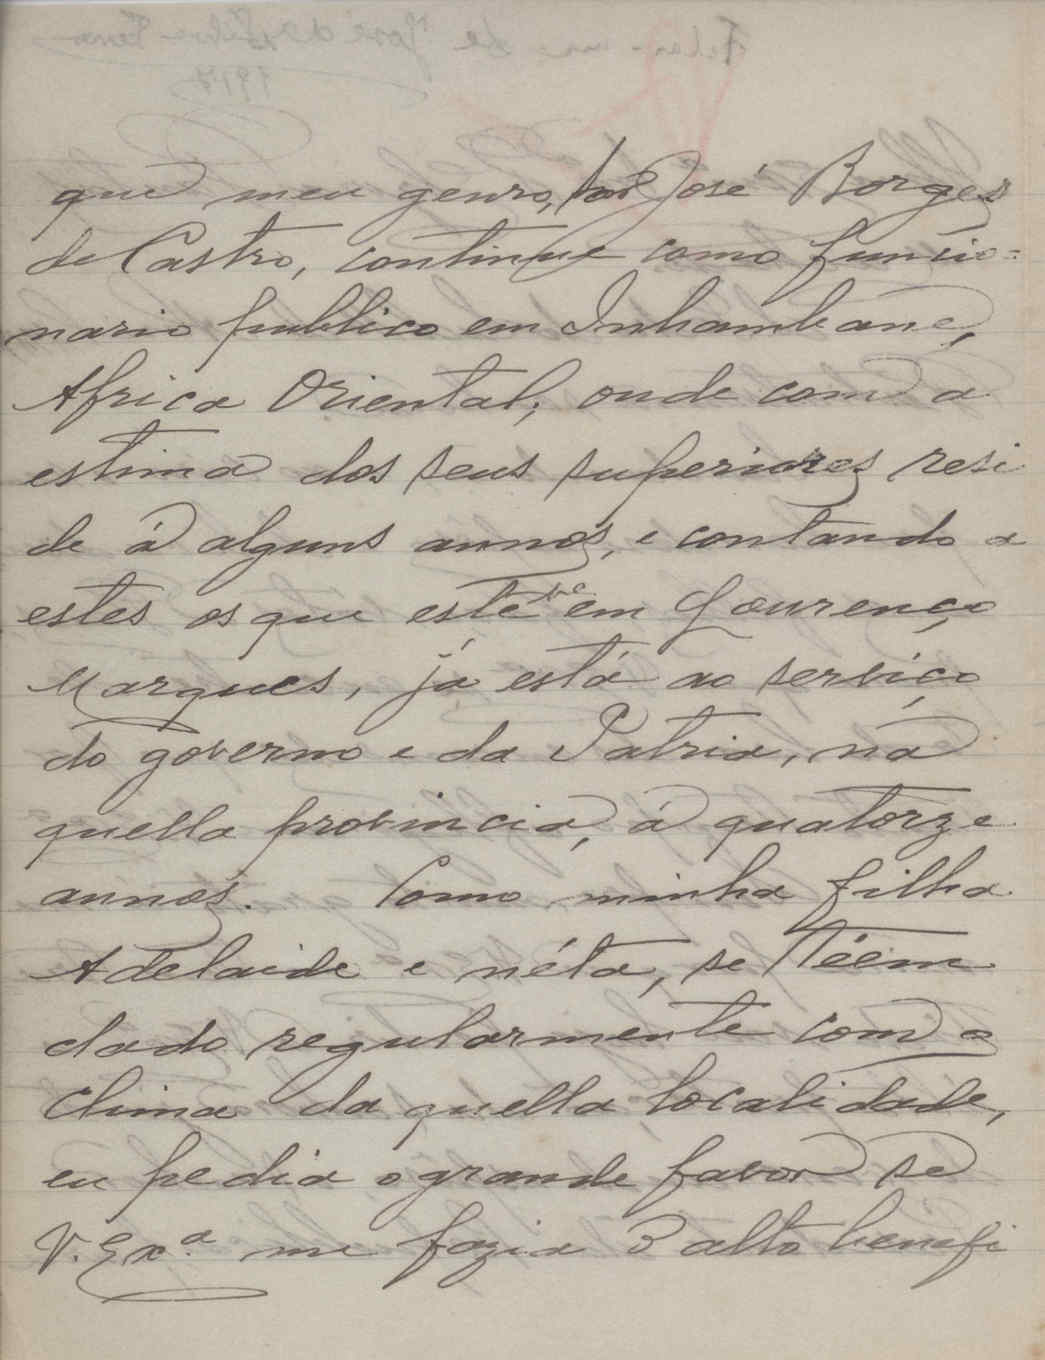 que meu genro, José Borges
de Castro, continue como funcio=
nario publico em Inhambane,
Africa Oriental, onde com a
estima dos seus superiores resi
de á alguns annos, e contando a
estes os que esteve em Lourenço
Marques, já está ao serviço
do governo e da Patria, na
quella provincia, á quatorze
annos. Como minha filha
Adelaide e néta, se téem
dado regularmente com o
clima da quella localidade,
eu pedia o grande favor se
V. Exª. me fazia o alto benefi